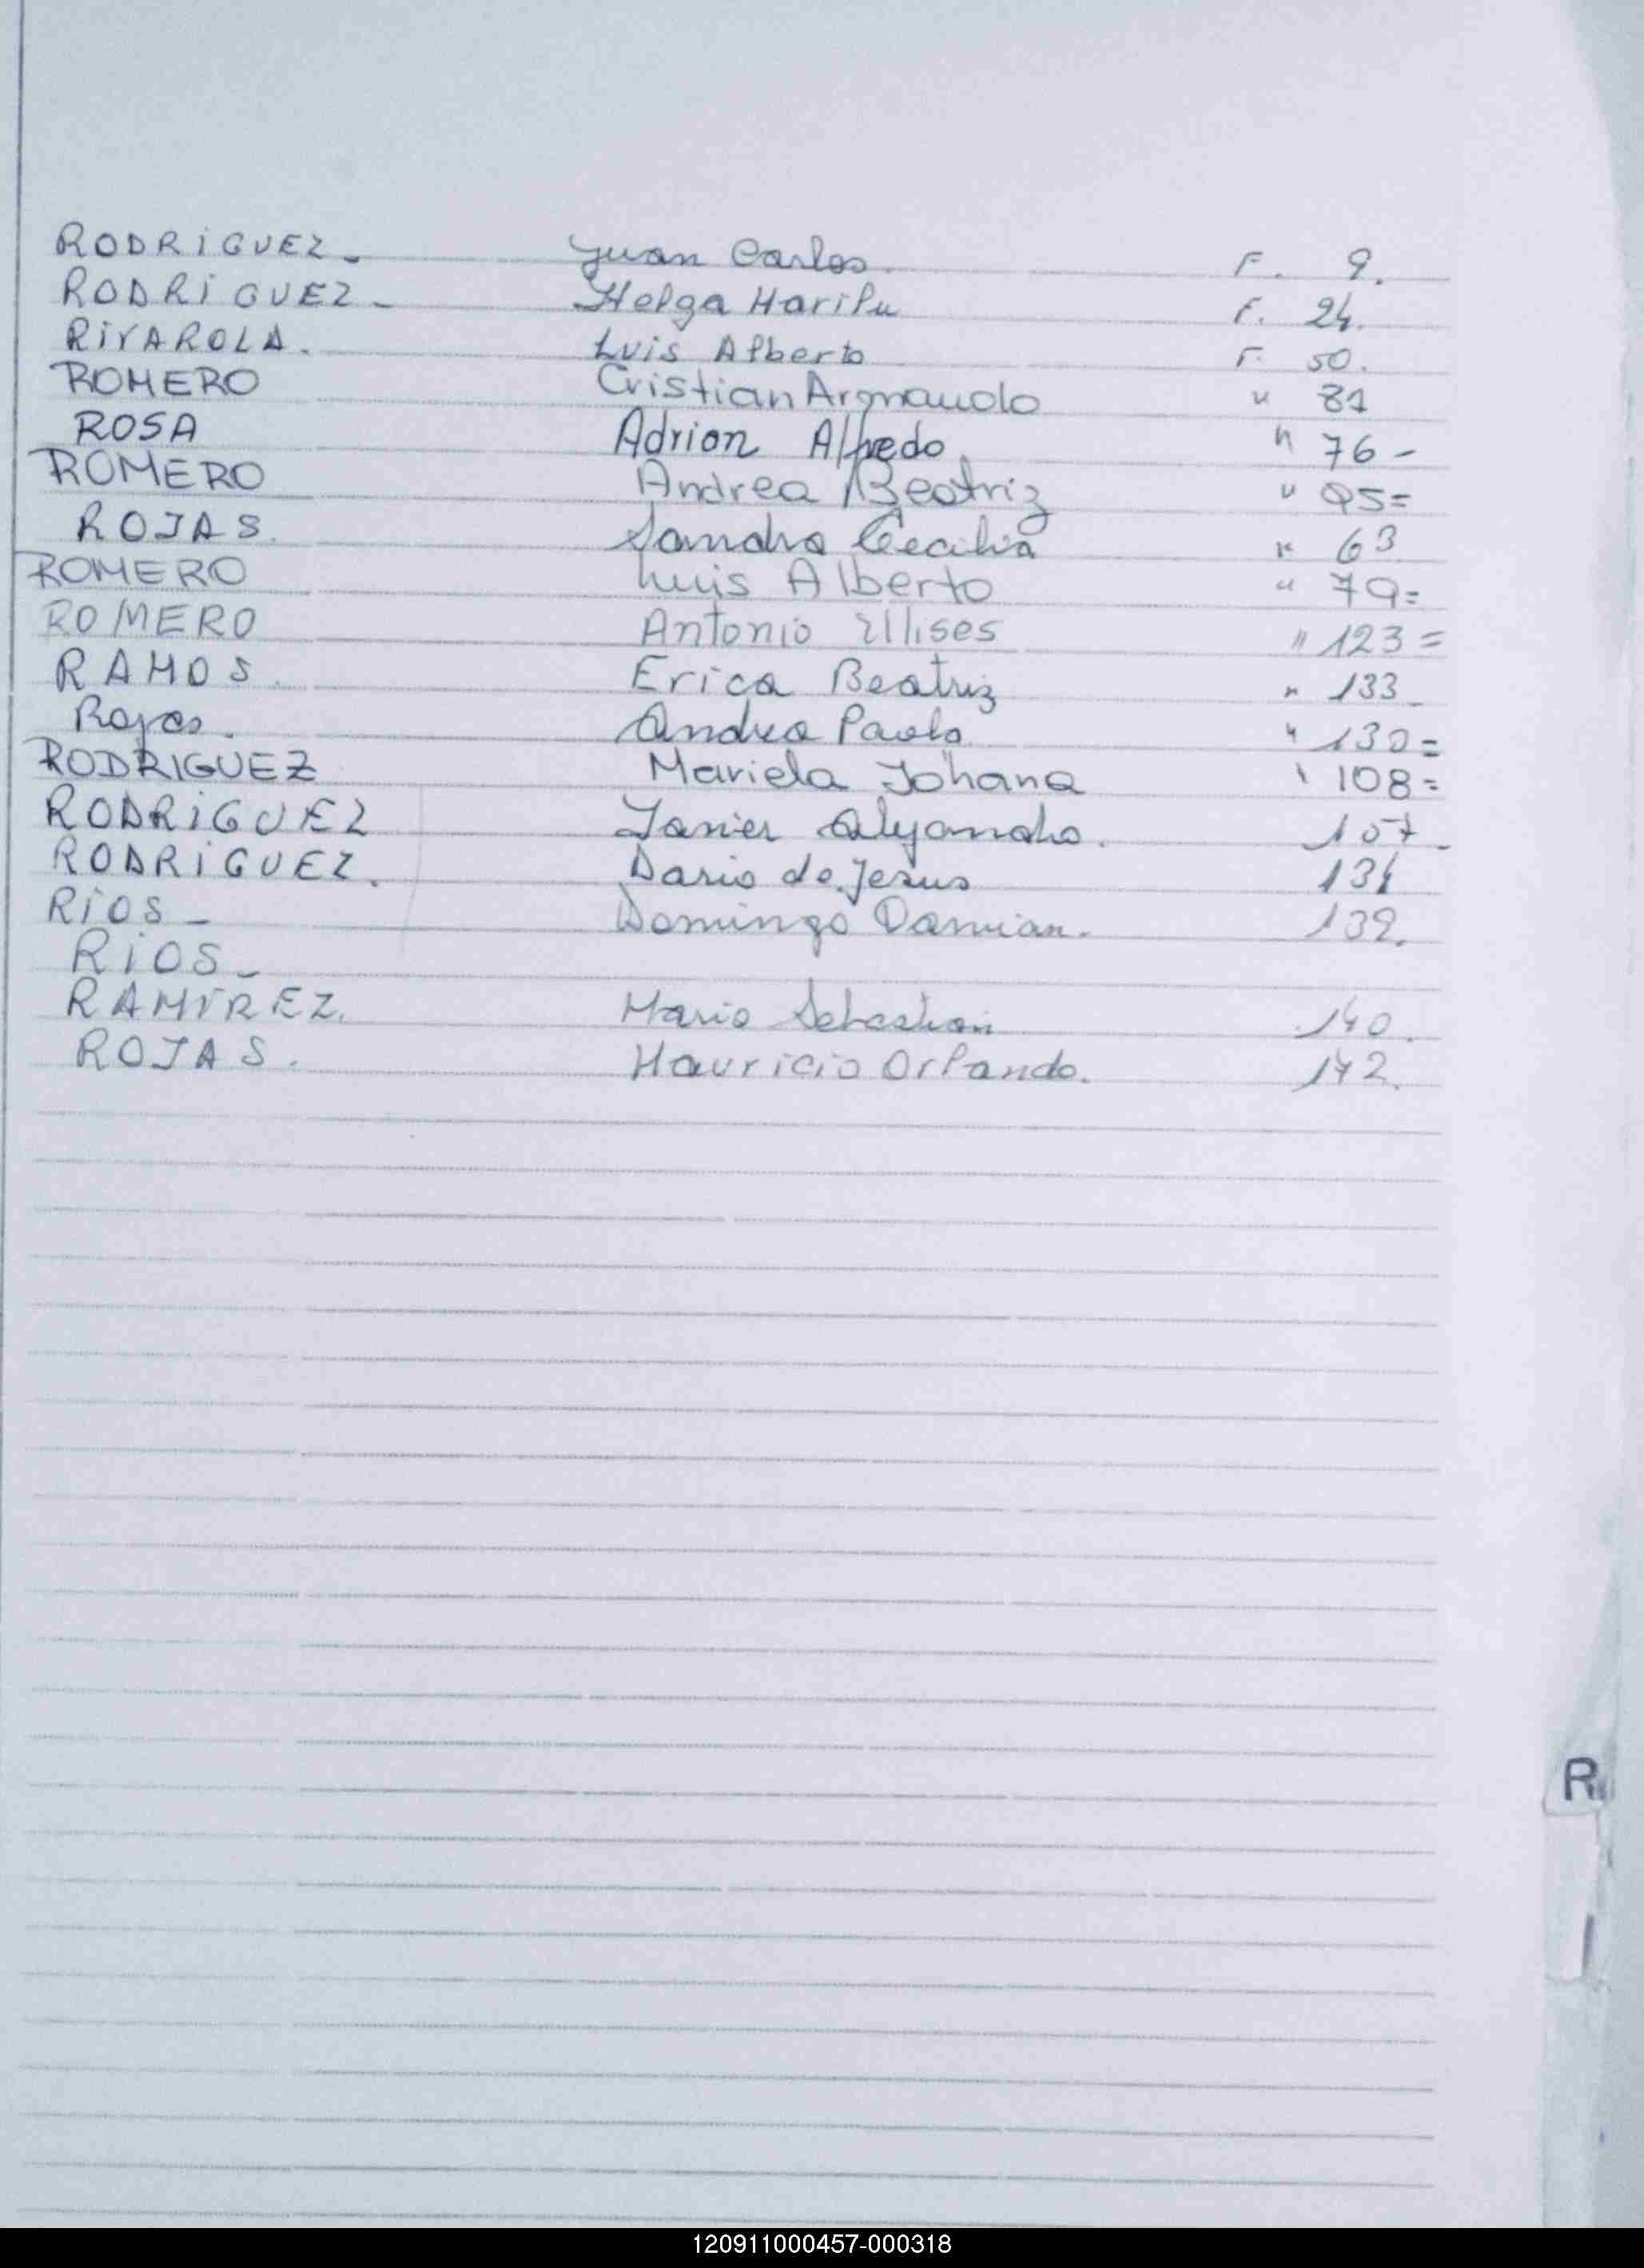 RODRIGUEZ - Juan Carlos. F. 9.
RODRIGUEZ - Helga Marilu F. 24.
RIVAROLA. Luis Alberto F. 50.
ROMERO Cristian Armando " 81
ROSA Adrion Alfredo " 76 -
ROMERO Andrea Beatriz " 95=
ROJAS. Sandra Cecilia " 63
ROMERO Luis Alberto " 79=
ROMERO Antonio Ullises " 123 =
RAMOS. Erica Beatriz " 133
Rojas. Andrea Paola " 130=
RODRIGUEZ Mariela Johana " 108=
RODRIGUEZ Javier Alejandro. 107
RODRIGUEZ. Dario de Jesus
RIOS - Domingo Damian. 139.
RIOS -
RAMIREZ. Mario Sebastian 140.
ROJAS. Mauricio Orlando. 142.
R
120911000457-000318